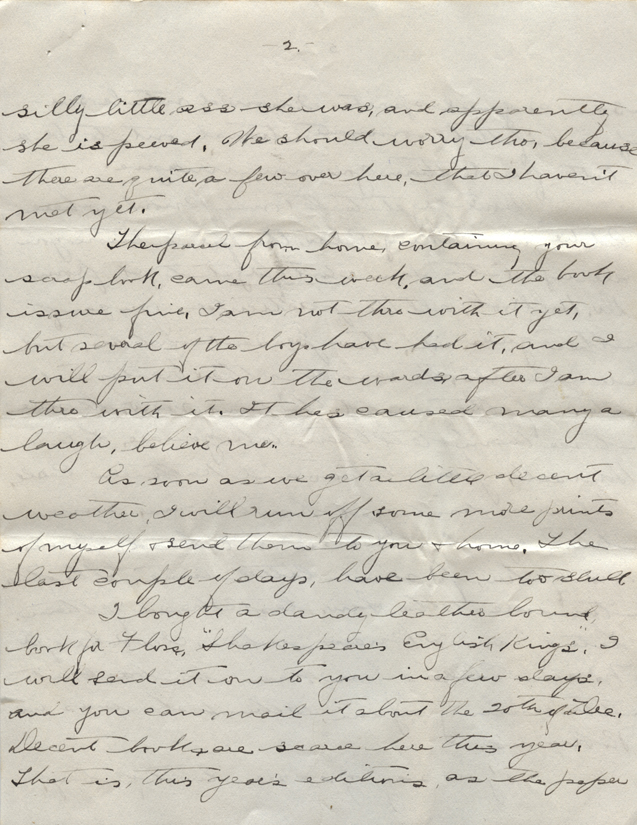 2.
silly little ass she was, and apparently
she is peeved. We should worry tho, because
there are quite a few over here, that I haven't
met yet.
The parcel from home, containing your
scrap book, came this week, and the book
is sure fine, I am not thro with it yet,
but several of the boys have had it, and I
will put it on the wards after I am
thro with it. It has caused many a
laugh, believe me.
As soon as we get a little decent
weather, I will run off some more prints
of myself & send them to you & home. The
last couple of days, have been too dull
I bought a dandy leather bound,
book for Floss, "Shakespeare's English Kings". I
will send it on to you in a few days,
and you can mail it about the 20th of Dec.
Decent books, are scarce here this year.
That is, this year's editions, as the paper